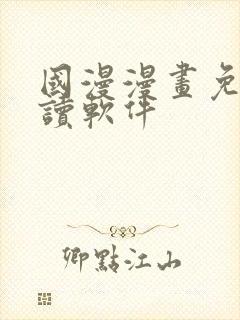 國漫漫畫免
讀軟件
卿點江山